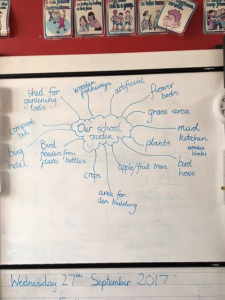 wooden
pathways
artificial
flower
beds
shed for
gardening
tools
grass area
compost
bin
Our school
garden
mud
kitchen
wooden
blocks
bug
hotel
Bird
feeders from
plastic bottles
plants
bird
house
crops
apple/fruit trees
area for
den building
Wednesday 27th September 2017